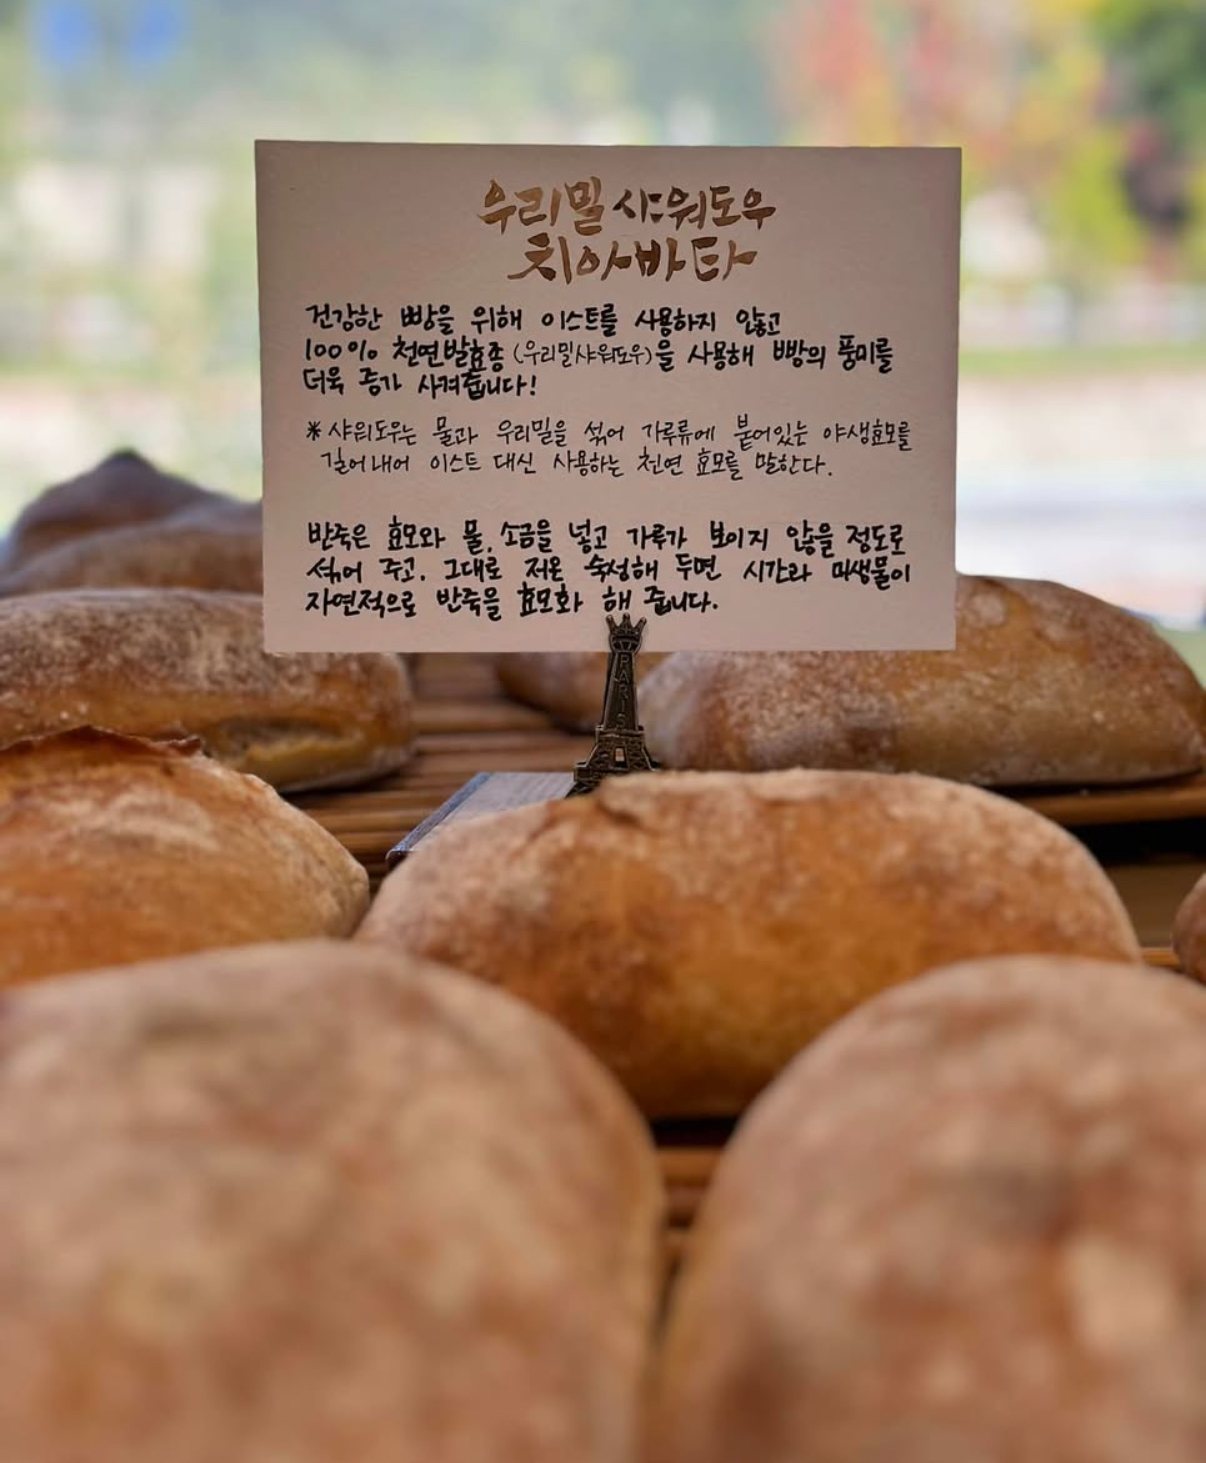 우리밀 샤워도우
치아바타
건강한 빵을 위해 이스트를 사용하지 않고
100% 천연발효종 (우리밀샤워도우)을 사용해 빵의 풍미를
더욱 증가 시켜줍니다!
* 샤워도우는 물과 우리밀을 섞어 가루류에 붙어있는 야생효모를
길어내어 이스트 대신 사용하는 천연 효모를 말한다.
반죽은 효모와 물, 소금을 넣고 가루가 보이지 않을 정도로
섞어 주고, 그대로 저온 숙성해 두면 시간과 미생물이
자연적으로 반죽을 효모화 해 줍니다.
PARIS